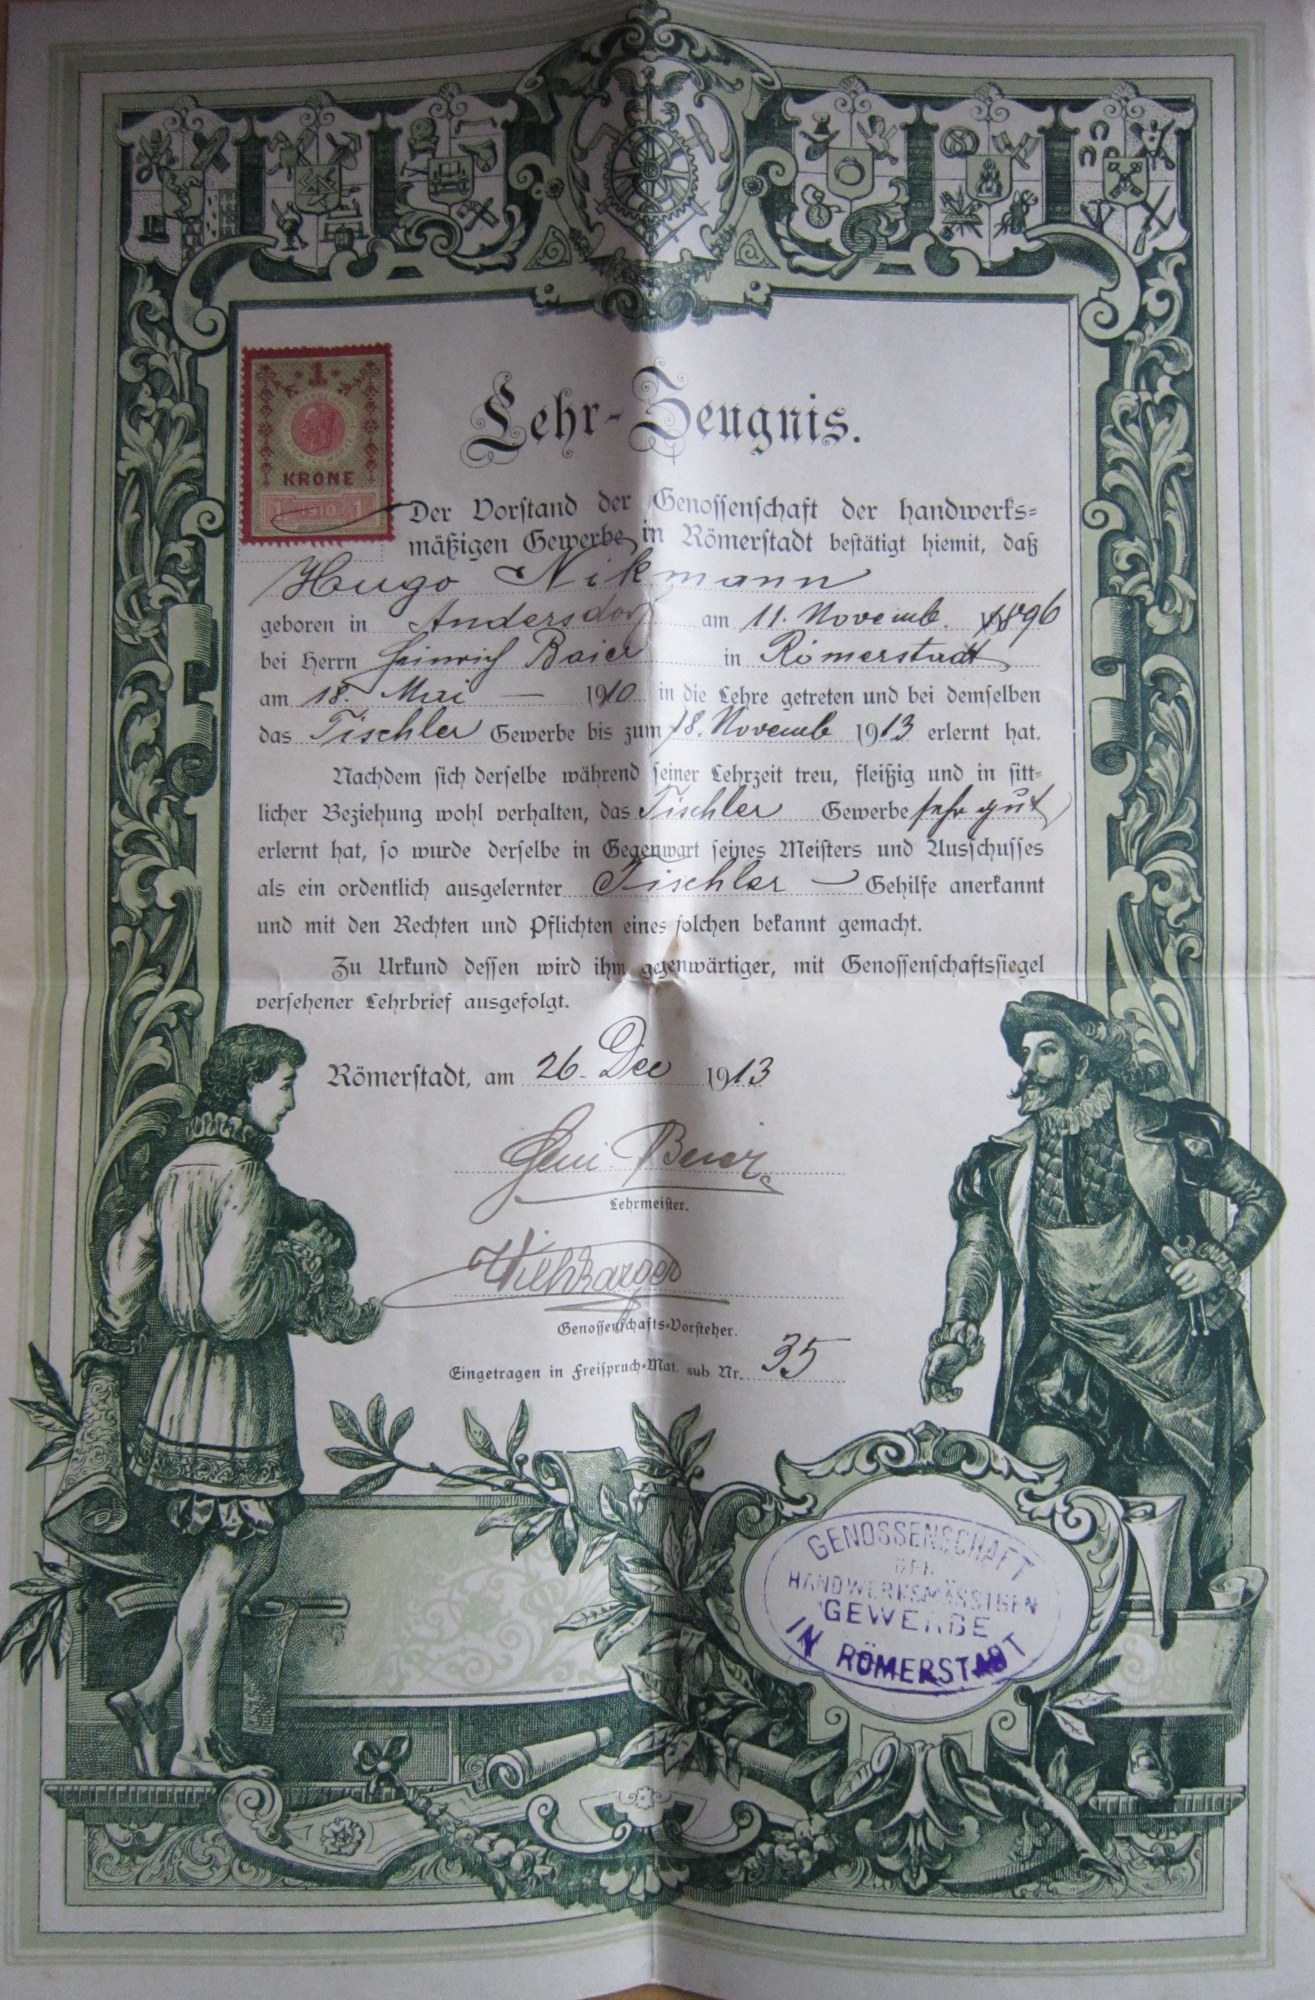 1
KRONE
1 1910 1
Lehr-Zeugnis.
Der Vorstand der Genossenschaft der handwerks-
mäßigen Gewerbe in Römerstadt bestätigt hiemit, daß
Hugo Nikmann
geboren in Andersdorf am 11. Novemb. 1896
bei Herrn Heinrich Baier in Römerstadt
am 18. Mai — 1910 in die Lehre getreten und bei demselben
das Tischler Gewerbe bis zum 18. Novemb 1913 erlernt hat.
Nachdem sich derselbe während seiner Lehrzeit treu, fleißig und in sitt-
licher Beziehung wohl verhalten, das Tischler Gewerbe sehr gut
erlernt hat, so wurde derselbe in Gegenwart seines Meisters und Ausschusses
als ein ordentlich ausgelernter Tischler — Gehilfe anerkannt
und mit den Rechten und Pflichten eines solchen bekannt gemacht.
Zu Urkund dessen wird ihm gegenwärtiger, mit Genossenschaftssiegel
versehener Lehrbrief ausgefolgt.
Römerstadt, am 26. Dec 1913
Lehrmeister.
Genossenschafts-Vorsteher.
Eingetragen in Freispruch-Mat. sub Nr. 35
GENOSSENSCHAFT
DER
HANDWERKSMÄSSIGEN
GEWERBE
IN RÖMERSTADT